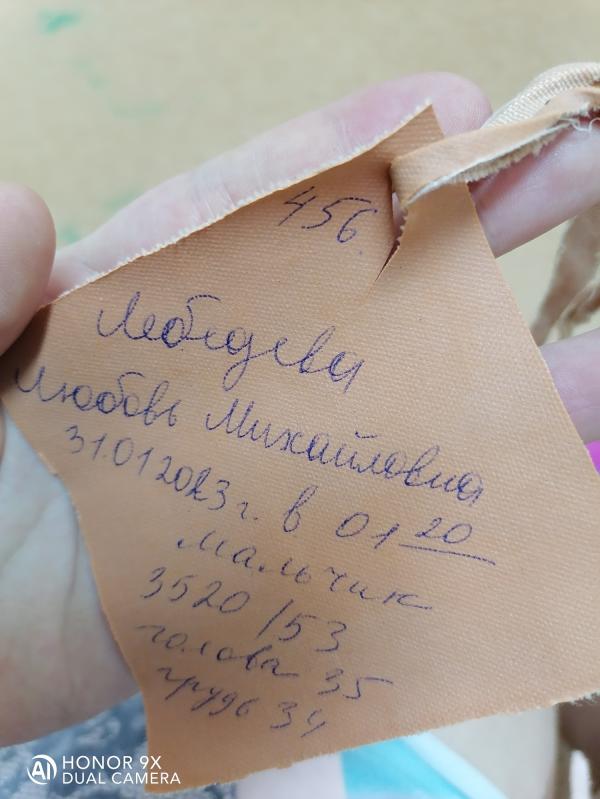 456.
Лебедева
Любовь Михайловна
31.01 2023 г. в 01 20
мальчик
3520 / 53
голова 35
грудь 34
HONOR 9X
DUAL CAMERA